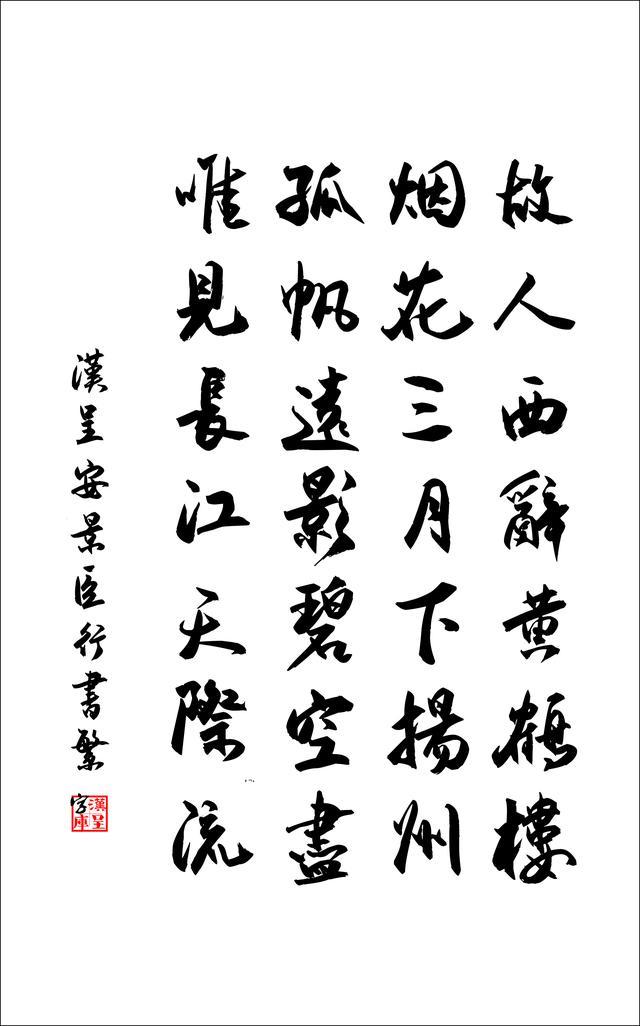 故人西辭黄鶴樓
烟花三月下揚州
孤帆遠影碧空盡
唯見長江天際流
漢呈安景臣行書繁
漢呈字庫